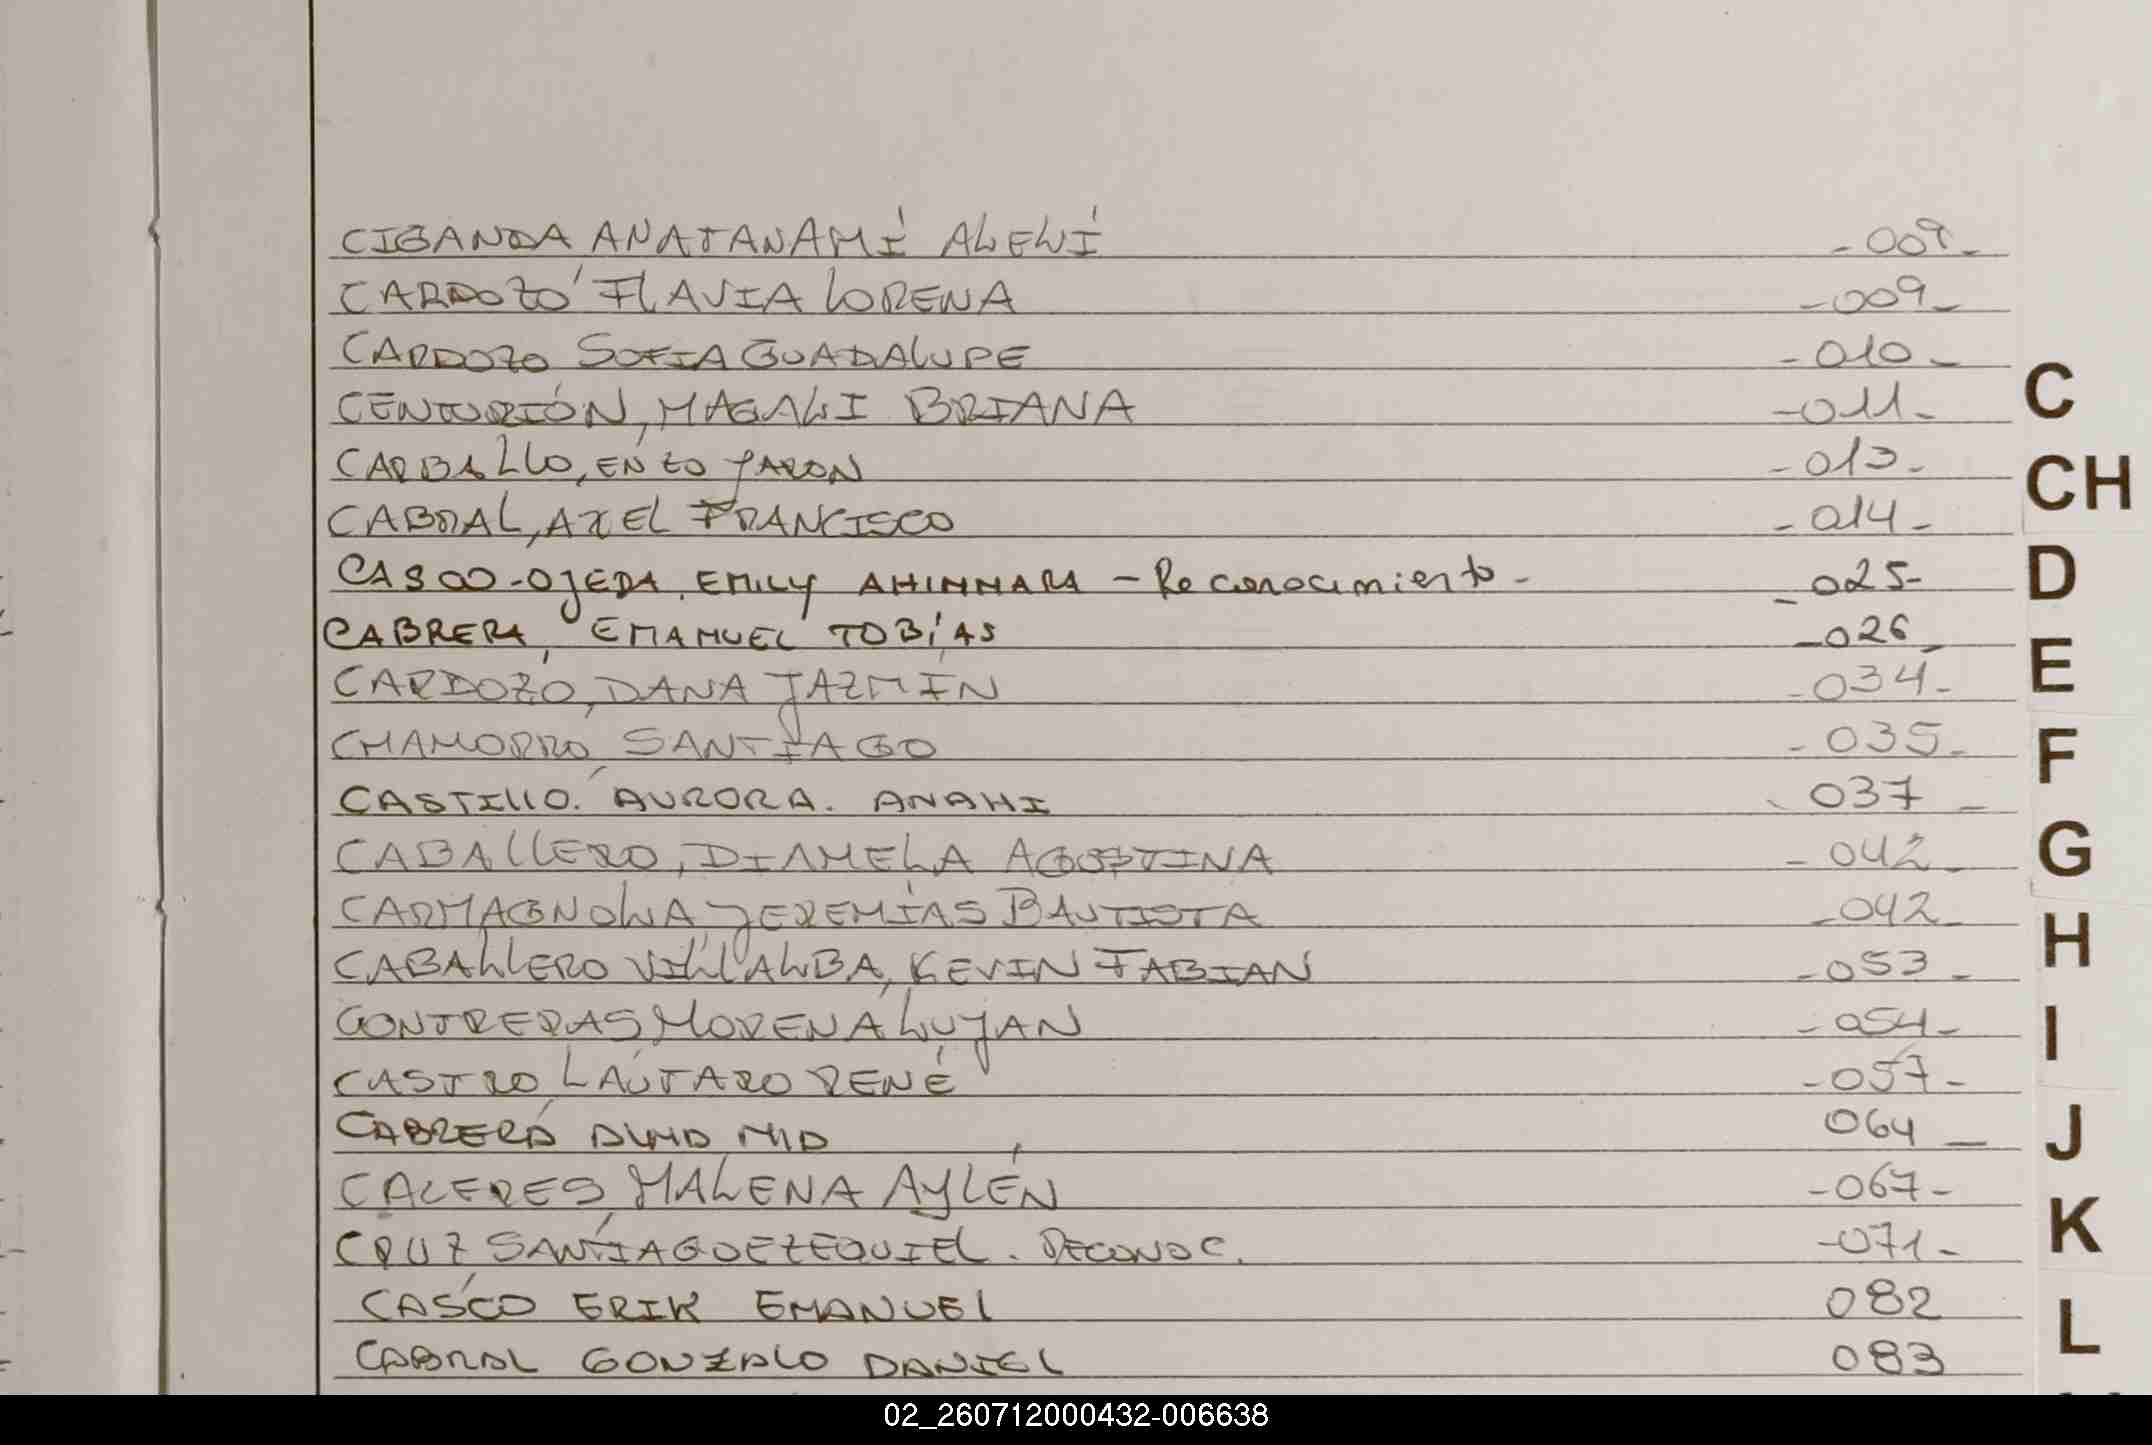 CIGANDA ANATANAMÍ ALELÍ -009-
CARDOZO FLAVIA LORENA -009-
CARDOZO SOFIA GUADALUPE -010-
CENTURIÓN, MAGALI BRIANA -011-
CARBALLO, ENZO YARON -013-
CABRAL, AXEL FRANCISCO -014-
CASCO-OJEDA, EMILY AHINNARA - Reconocimiento - -025-
CABRERA, EMANUEL TOBÍAS -026-
CARDOZO, DANA JAZMÍN -034-
CHAMORRO, SANTIAGO -035-
CASTILLO. AURORA. ANAHI 037-
CABALLERO, DIAMELA AGOSTINA -042-
CARMAGNOLA, JEREMÍAS BAUTISTA -042-
CABALLERO VILLALBA, KEVIN FABIAN -053-
CONTRERAS MORENA LUJAN -054-
CASTRO LAUTARO RENÉ -057-
CABRERA 064-
CACERES, MALENA AYLÉN -067-
CRUZ SANTIAGO EZEQUIEL. RECONOC. -071-
CASCO ERIK EMANUEL 082
CABRAL GONZALO DANIEL 083
C
CH
D
E
F
G
H
I
J
K
L
02_260712000432-006638